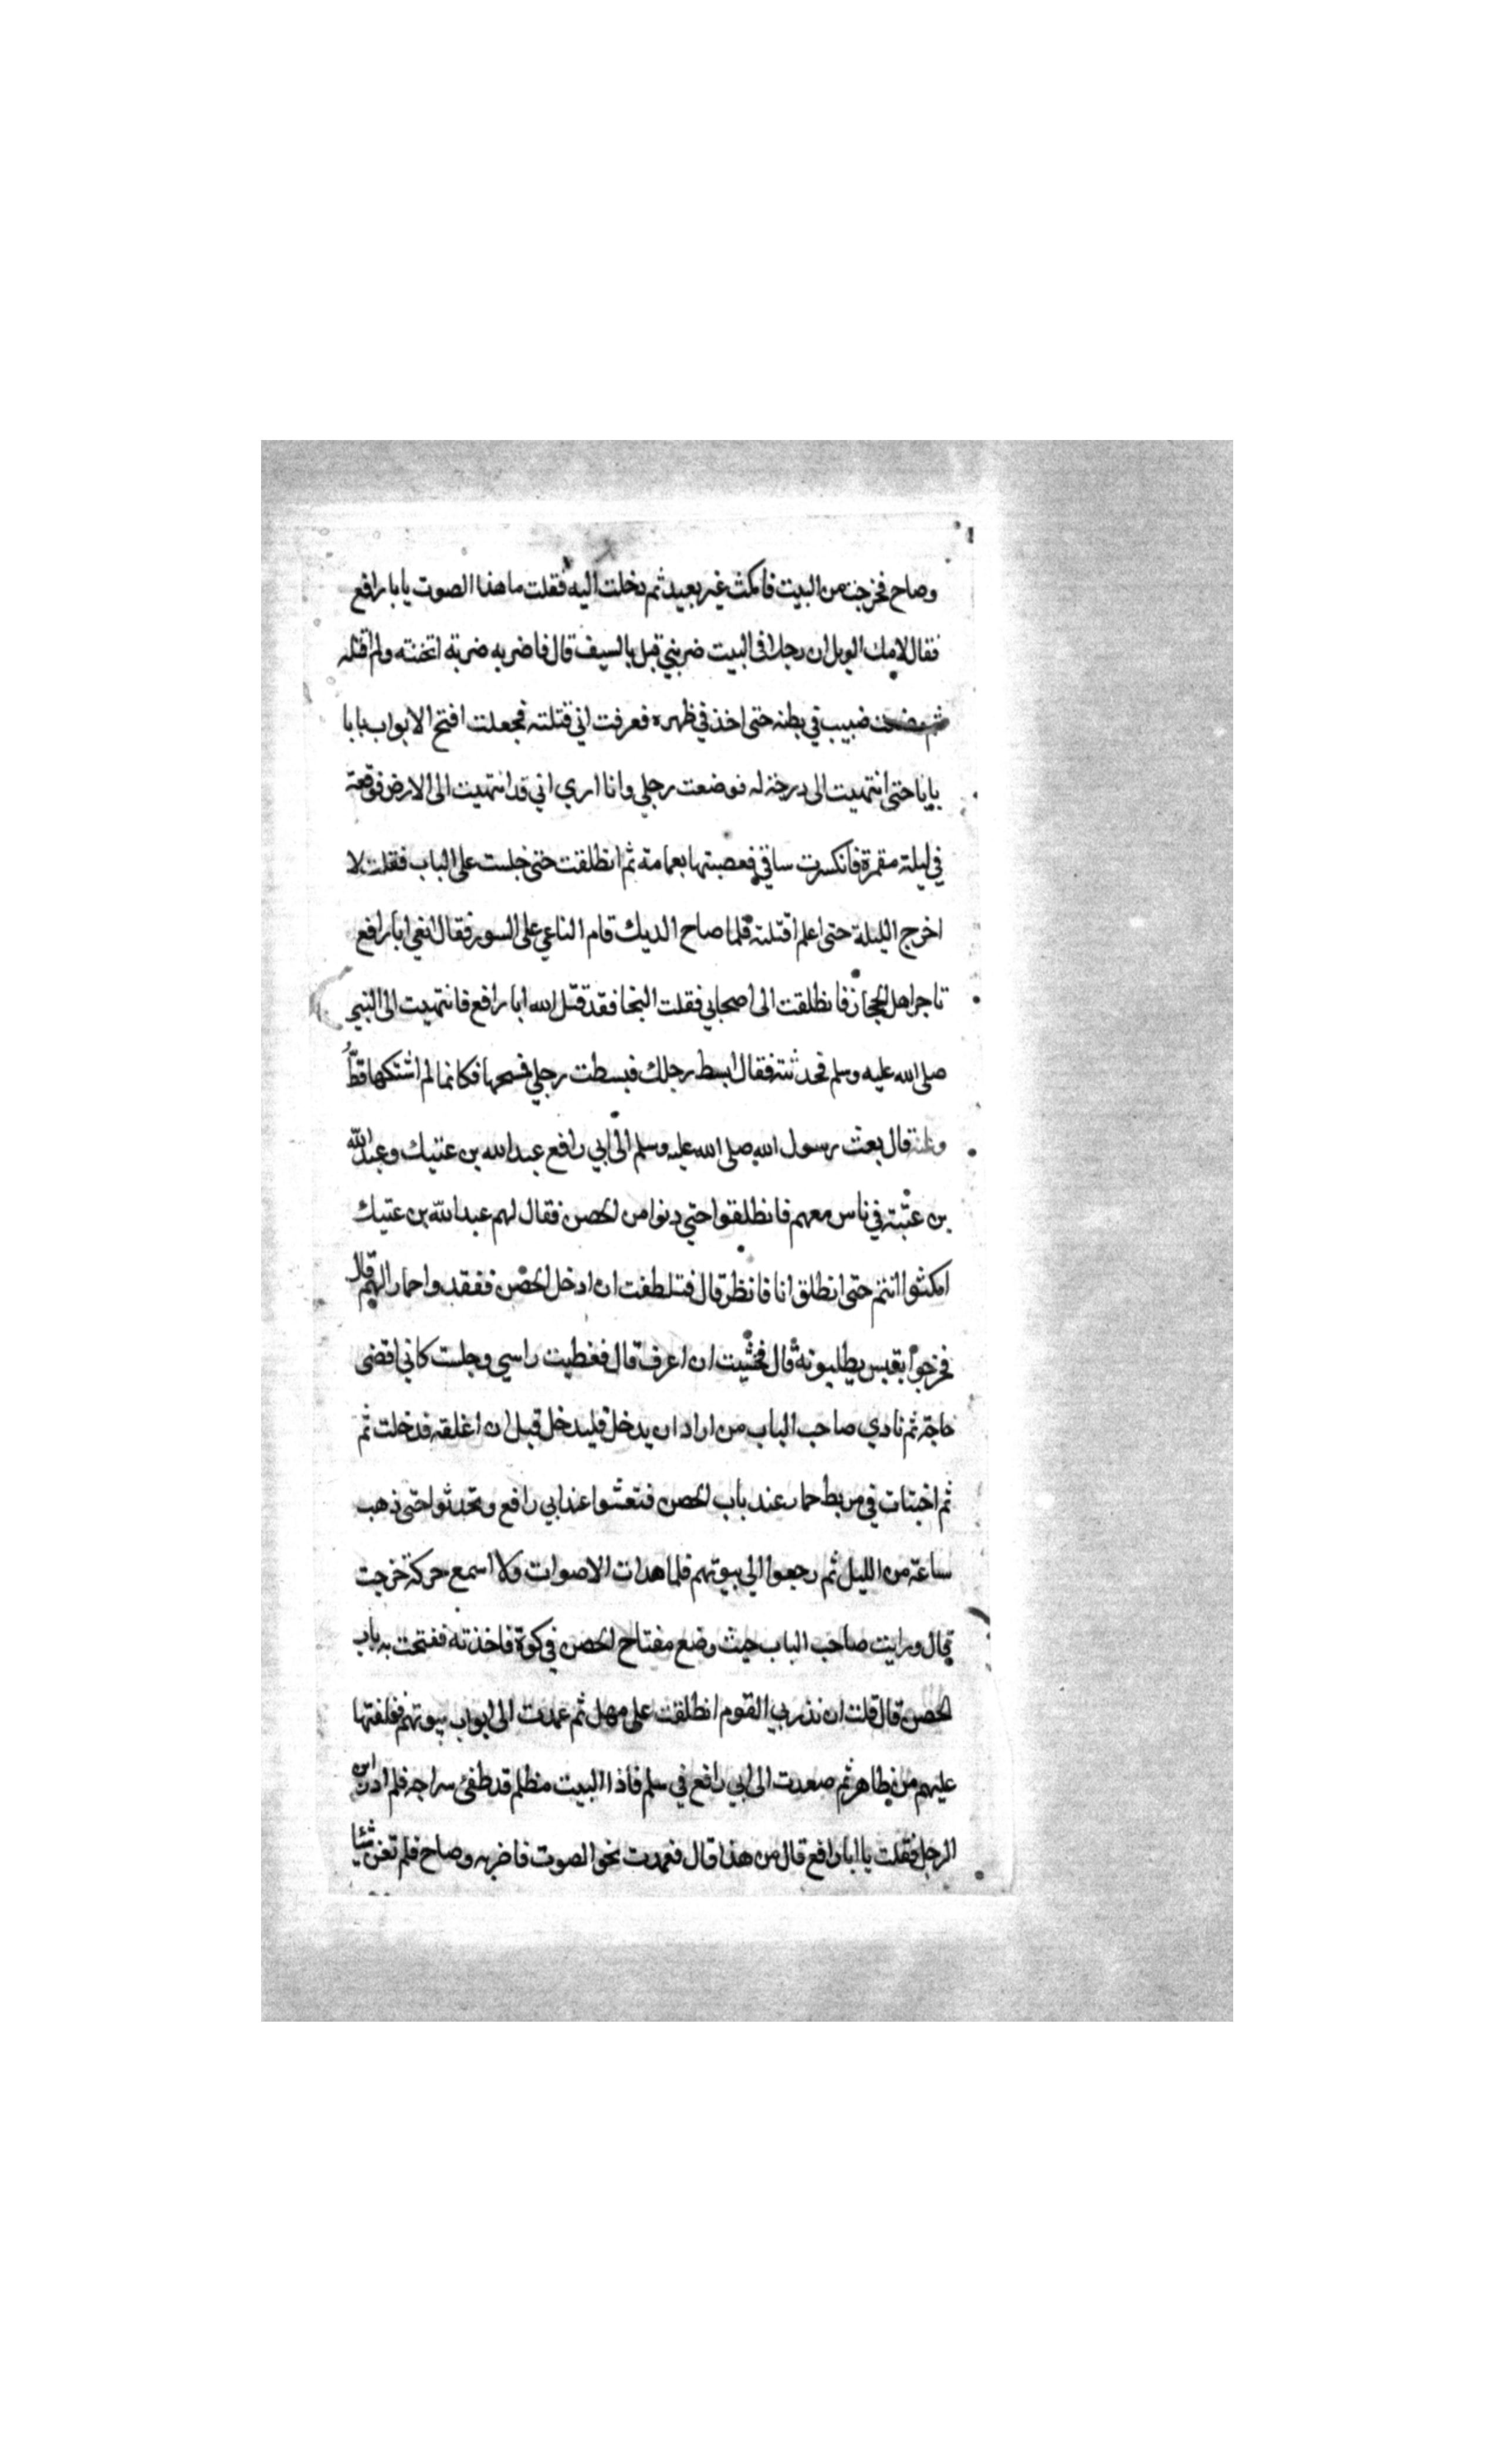 وصاح فخرجت من البيت فامكث غير بعيد ثم دخلت اليه فقلت ما هذا الصوت يابا رافع
فقال لامك الويل ان رجلا في البيت ضربني قبل بالسيف قال فاضربه ضربة اثخنته ولم اقتله
ثم وضعت ضبيب في بطنه حتى اخذ في ظهره فعرفت اني قتلته فجعلت افتح الابواب بابا
بابا حتى انتهيت الى درجة له فوضعت رجلي وانا اري اني قد انتهيت الى الارض فوقعة
في ليلة مقمرة فانكسرت ساقي فعصبتها بعمامة ثم انطلقت حتى جلست على الباب فقلت لا
اخرج الليلة حتى اعلم اقتلته فلما صاح الديك قام الناعي على السور فقال انعي ابا رافع
تاجر اهل الحجاز فانطلقت الى اصحابي فقلت النجا فقد قتل الله ابا رافع فانتهيت الى النبي
صلى الله عليه وسلم فحدثته فقال ابسط رجلك فبسطت رجلي فمسحها فكانما لم اشتكها قطُّ
وعنه قال بعث رسول الله صلى الله عليه وسلم الى ابي رافع عبد الله بن عتيك وعبد الله
بن عتبة في ناس معهم فانطلقوا حتي دنوا من الحصن فقال لهم عبد الله بن عتيك
امكثوا انتم حتى انطلق انا فانظر قال فتلطفت ان ادخل الحصن ففقدوا حمارا لهم قال
فخرجوا بقبس يطلبونه قال فخشيت ان اعرف قال فغطيت راسي وجلست كاني اقضى
حاجة ثم نادي صاحب الباب من اراد ان يدخل فليدخل قبل ان اغلقه فدخلت ثم
ثم اختبات في مربط حمار عند باب الحصن فتعشوا عند ابي رافع وتحدثوا حتى ذهب
ساعة من الليل ثم رجعوا الي بيوتهم فلما هدات الاصوات ولا اسمع حركة خرجت
قال ورايت صاحب الباب حيث وضع مفتاح الحصن في كوة فاخذته ففتحت به باب
الحصن قال قلت ان نذر بي القوم انطلقت على مهل ثم عمدت الى ابواب بيوتهم فغلقتها
عليهم من ظاهر ثم صعدت الى ابي رافع في سلم فاذا البيت مظلم قد طفئ سراجه فلم ادر اين
الرجل فقلت يا ابا رافع قال من هذا قال فعمدت نحو الصوت فاضربه وصاح فلم تغن شيئا